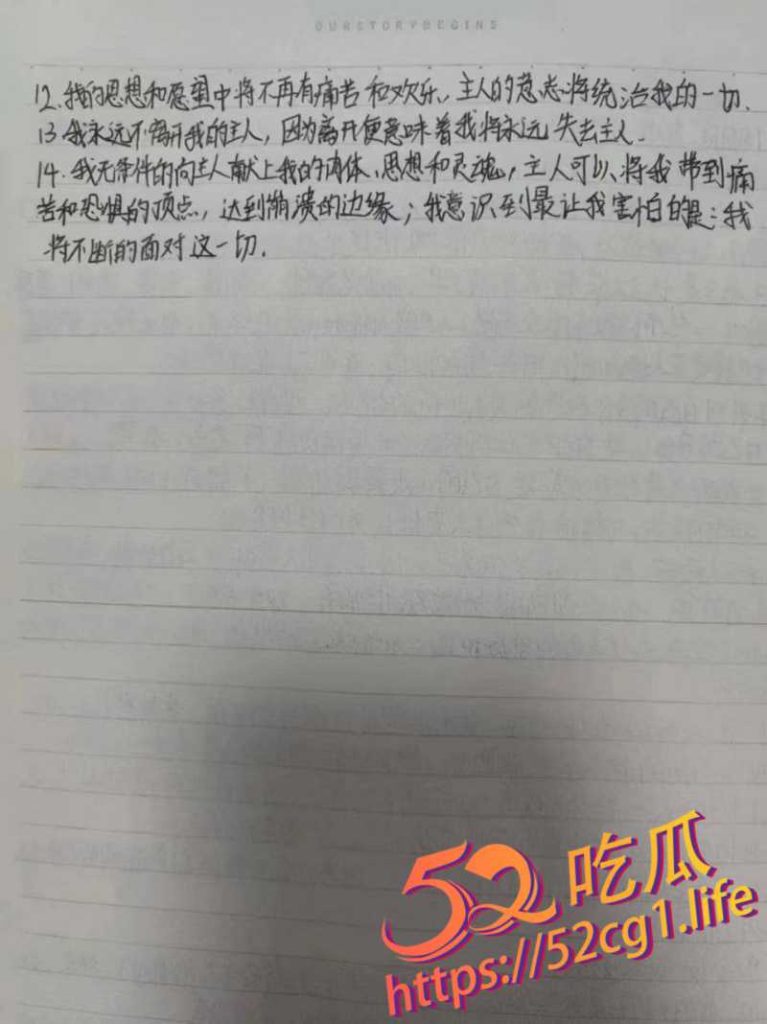 OURSTORYBEGINS
12.我的思想和愿望中将不再有痛苦和欢乐、主人的意志将统治我的一切.
13.我永远不离开我的主人，因为离开便意味着我将永远失去主人.
14.我无条件的向主人献上我的肉体、思想和灵魂，主人可以、将我带到痛
苦和恐惧的顶点，达到崩溃的边缘；我意识到最让我害怕的是：我
将不断的面对这一切.
52吃瓜
https://52cg1.life